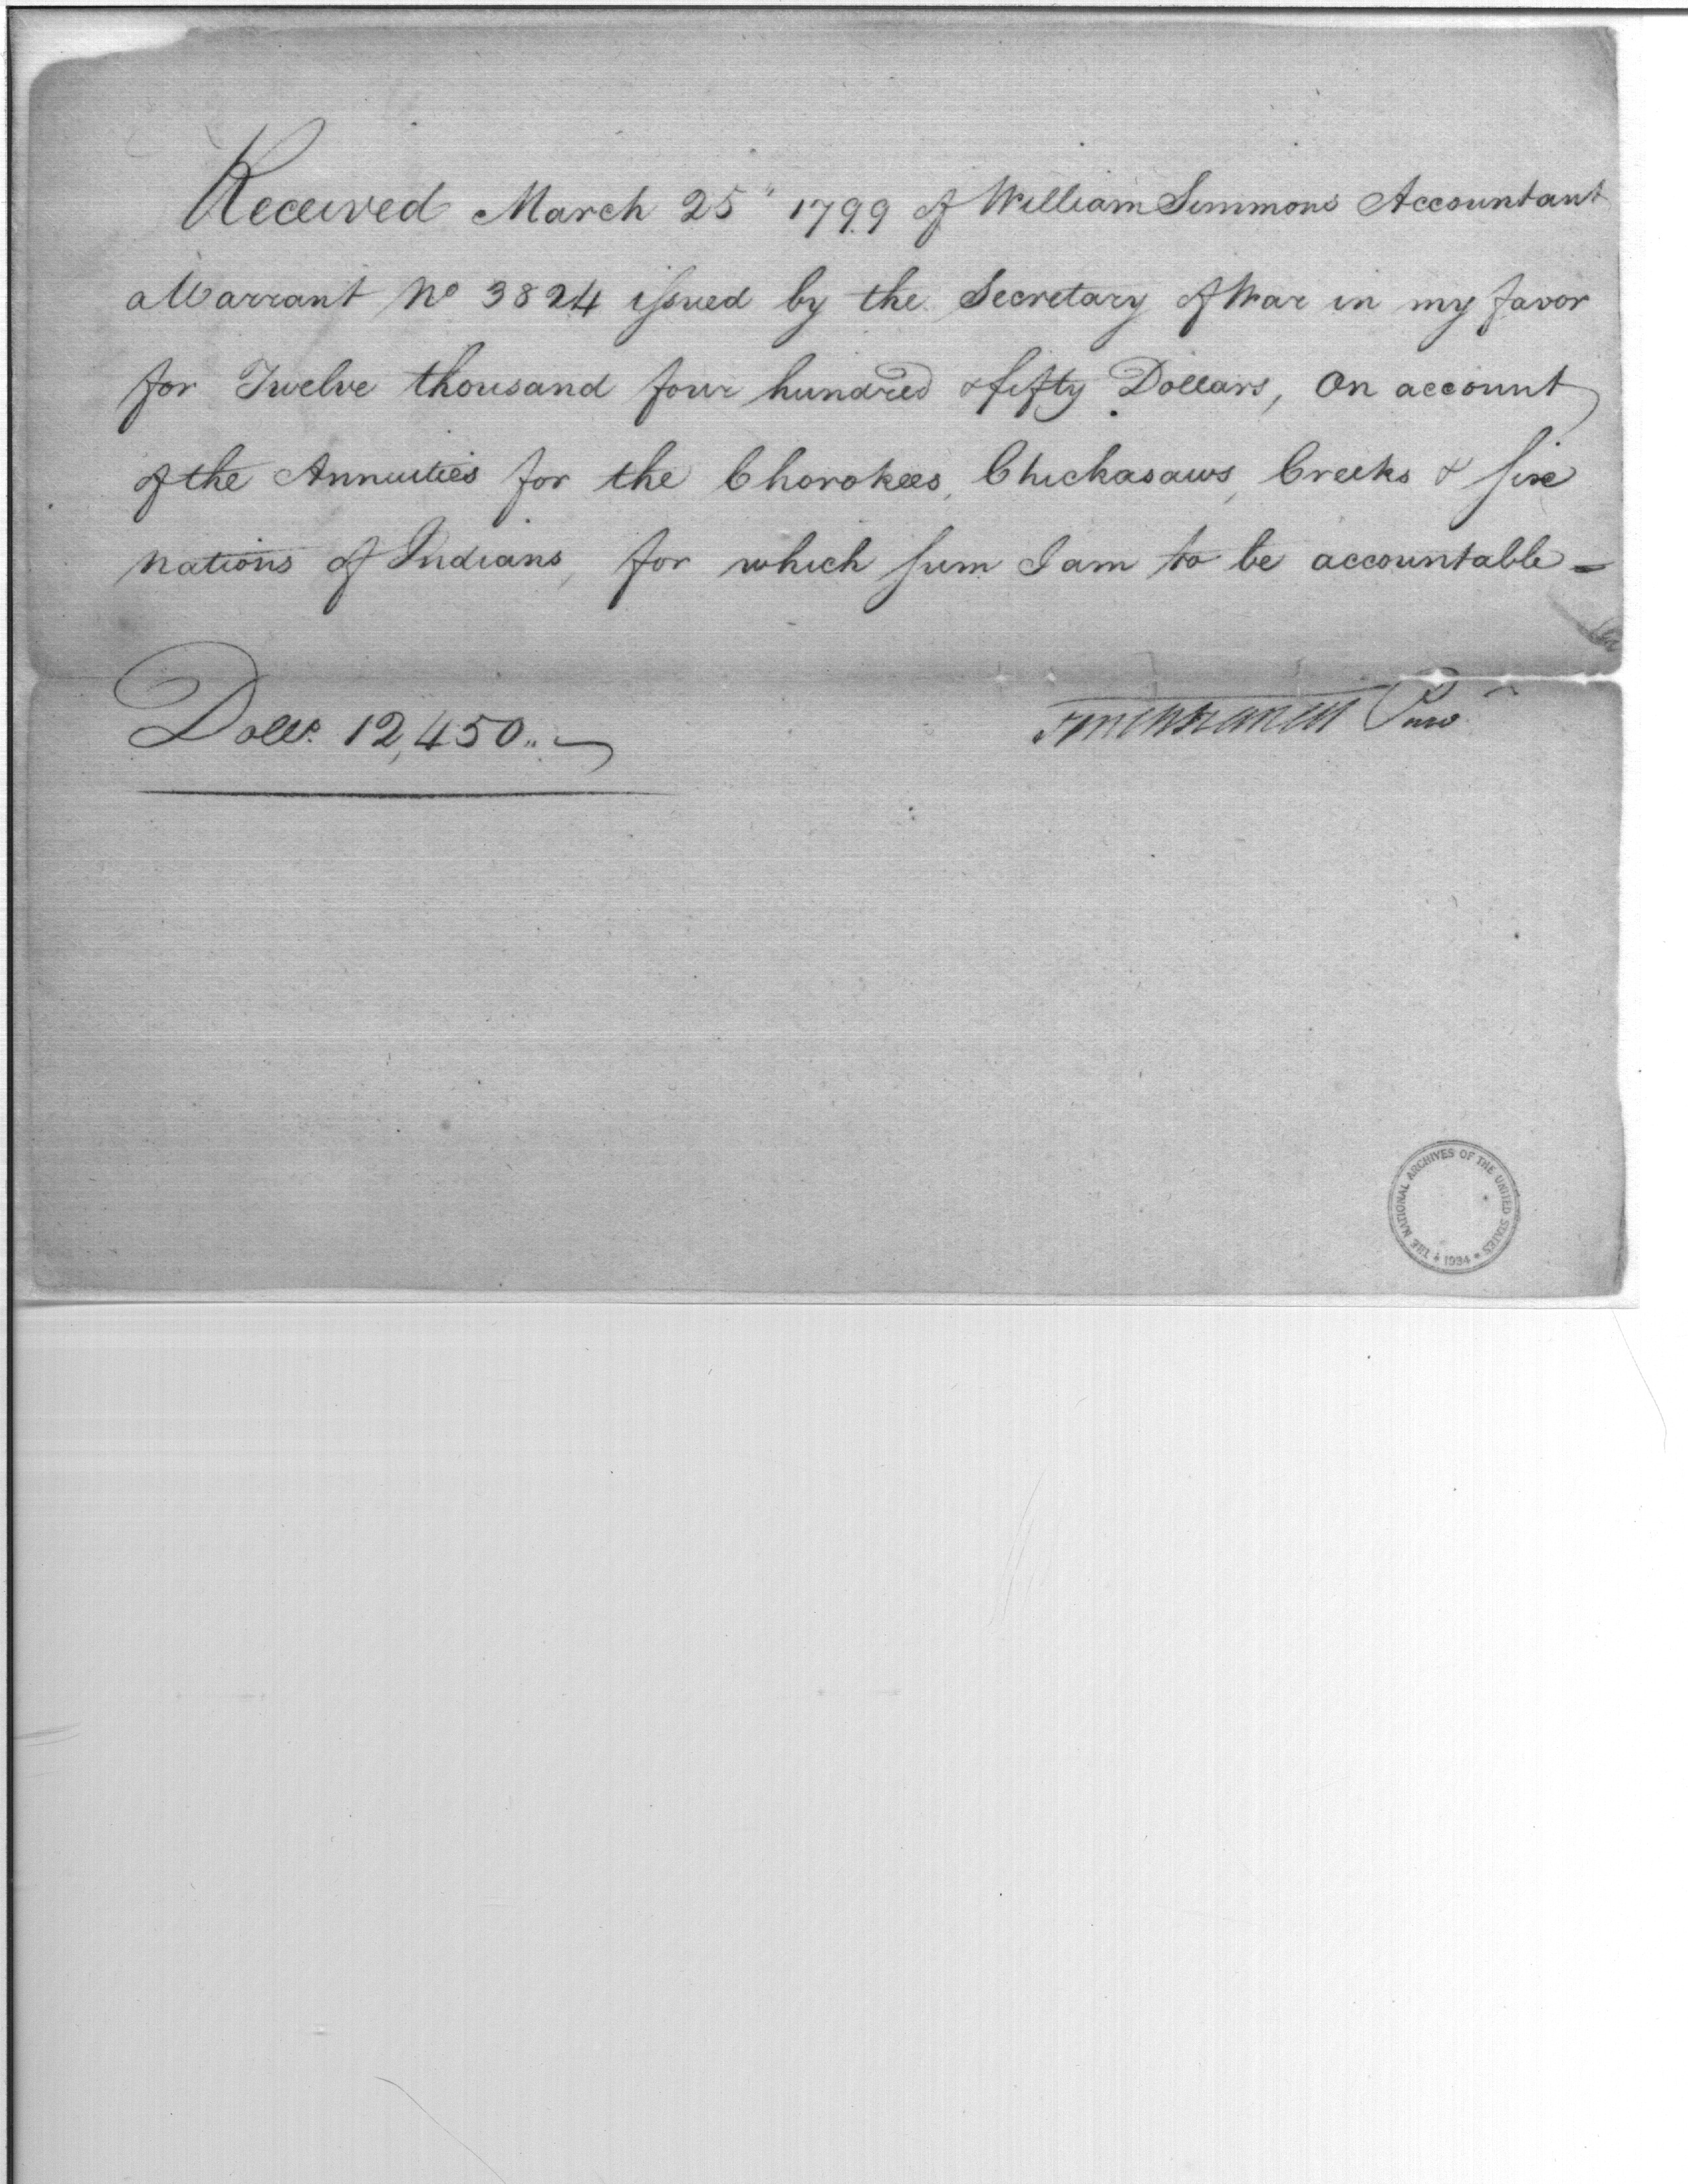 Received March 25" 1799 of William Simmons Accountant
a Warrant No 3824 issued by the Secretary of War in my favor
for Twelve thousand four hundred & fifty Dollars, On account
of the Annuities for the Chorokees, Chickasaws, Creeks & six
nations of Indians, for which sum I am to be accountable –
Dolls. 12,450..
Tench Francis Purvr
THE NATIONAL ARCHIVES OF THE UNITED STATES * 1934 *